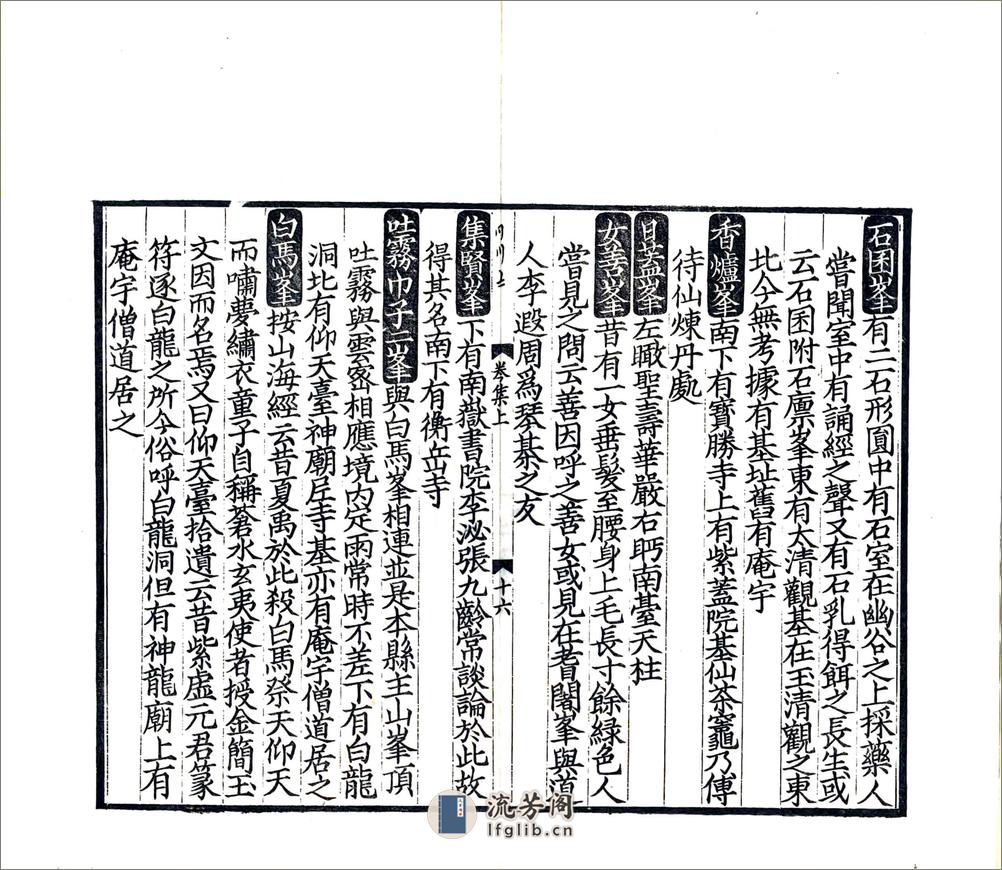 石囷峯有二石形圓中有石室在幽谷之上採藥人
嘗聞室中有誦經之聲又有石乳得餌之長生或
云石囷附石廪峯東有太清觀基在玉清觀之東
北今無考據有基址舊有庵宇
香爐峯南下有寶勝寺上有紫蓋院基仙茶竈乃傅
待仙煉丹處
甘蓋峯左瞰聖壽華嚴右眄南臺天柱
女善峯昔有一女垂髮至腰身上毛長寸餘緑色人
嘗見之問云善因呼之善女或見在耆闍峯與道
人李遐周爲琴棊之友
卷集上
十六
集賢峯下有南嶽書院李泌張九齡常談論於此故
得其名南下有衡岳寺
吐霧巾子二峯與白馬峯相連並是本縣主山峯頂
吐霧與雲密相應境内定雨常時不差下有白龍
洞北有仰天臺神廟后寺基亦有庵宇僧道居之
白馬峯按山海經云昔夏禹於此殺白馬祭天仰天
而嘯夢繡衣童子自稱蒼水玄夷使者授金簡玉
文因而名焉又曰仰天臺拾遺云昔紫虚元君篆
符逐白龍之所今俗呼白龍洞但有神龍廟上有
庵宇僧道居之
流芳阁
lfglib.cn